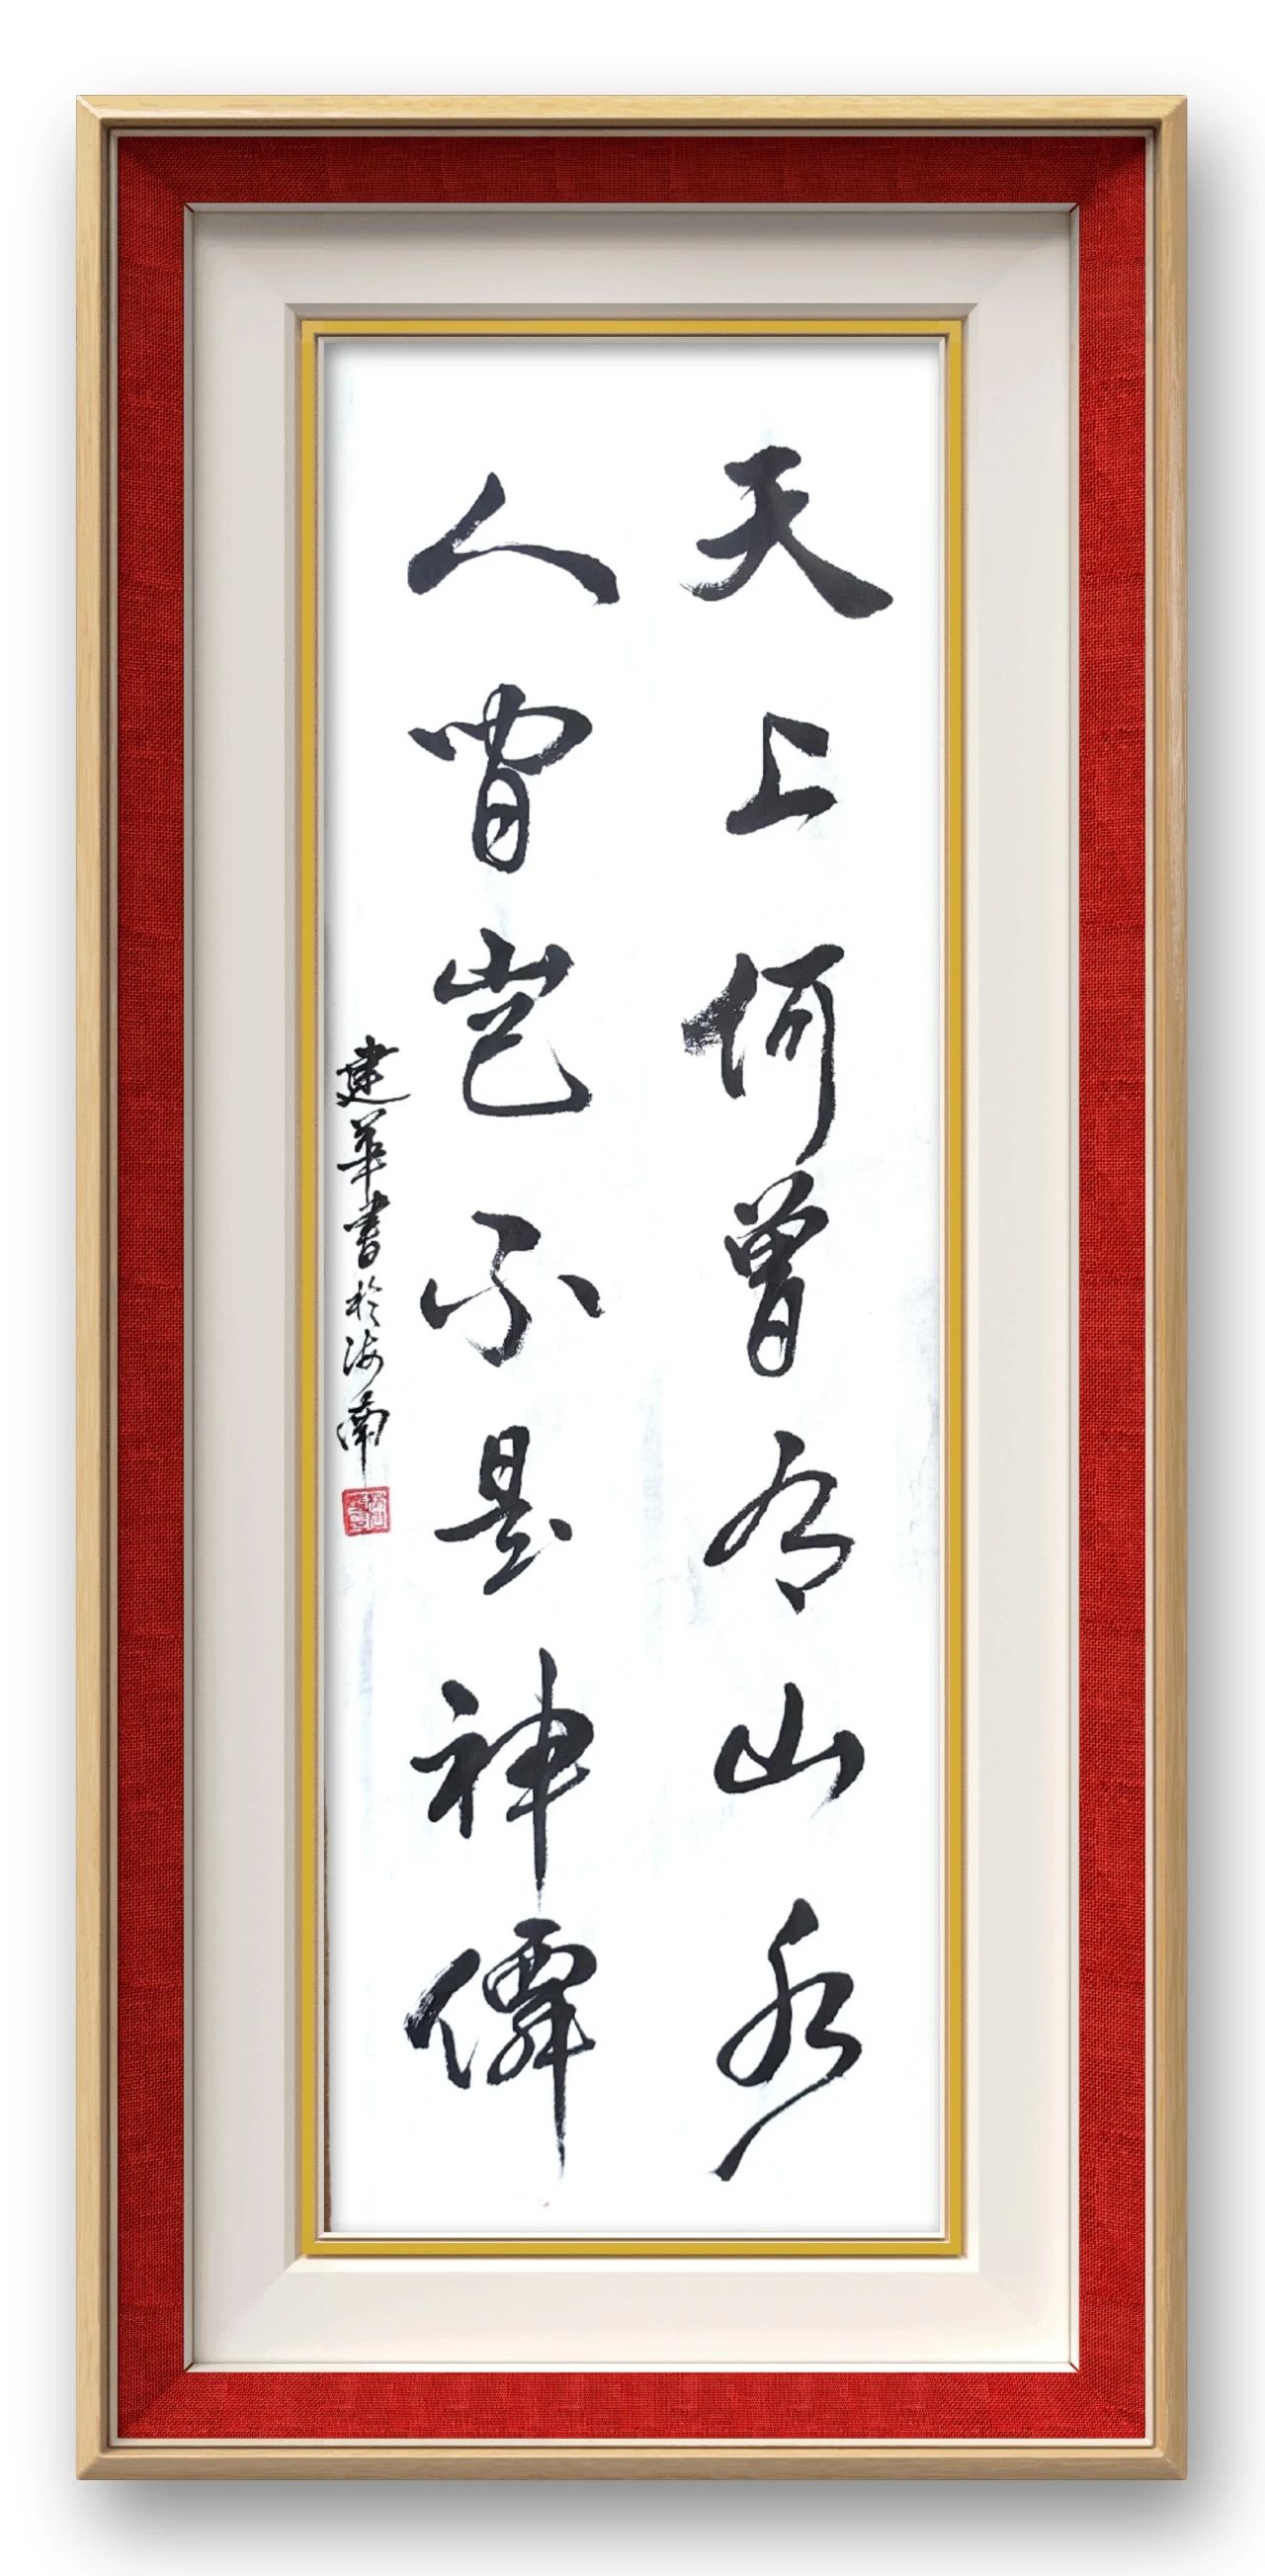 天上何曾有山水
人間豈不是神僊
建華書於海南